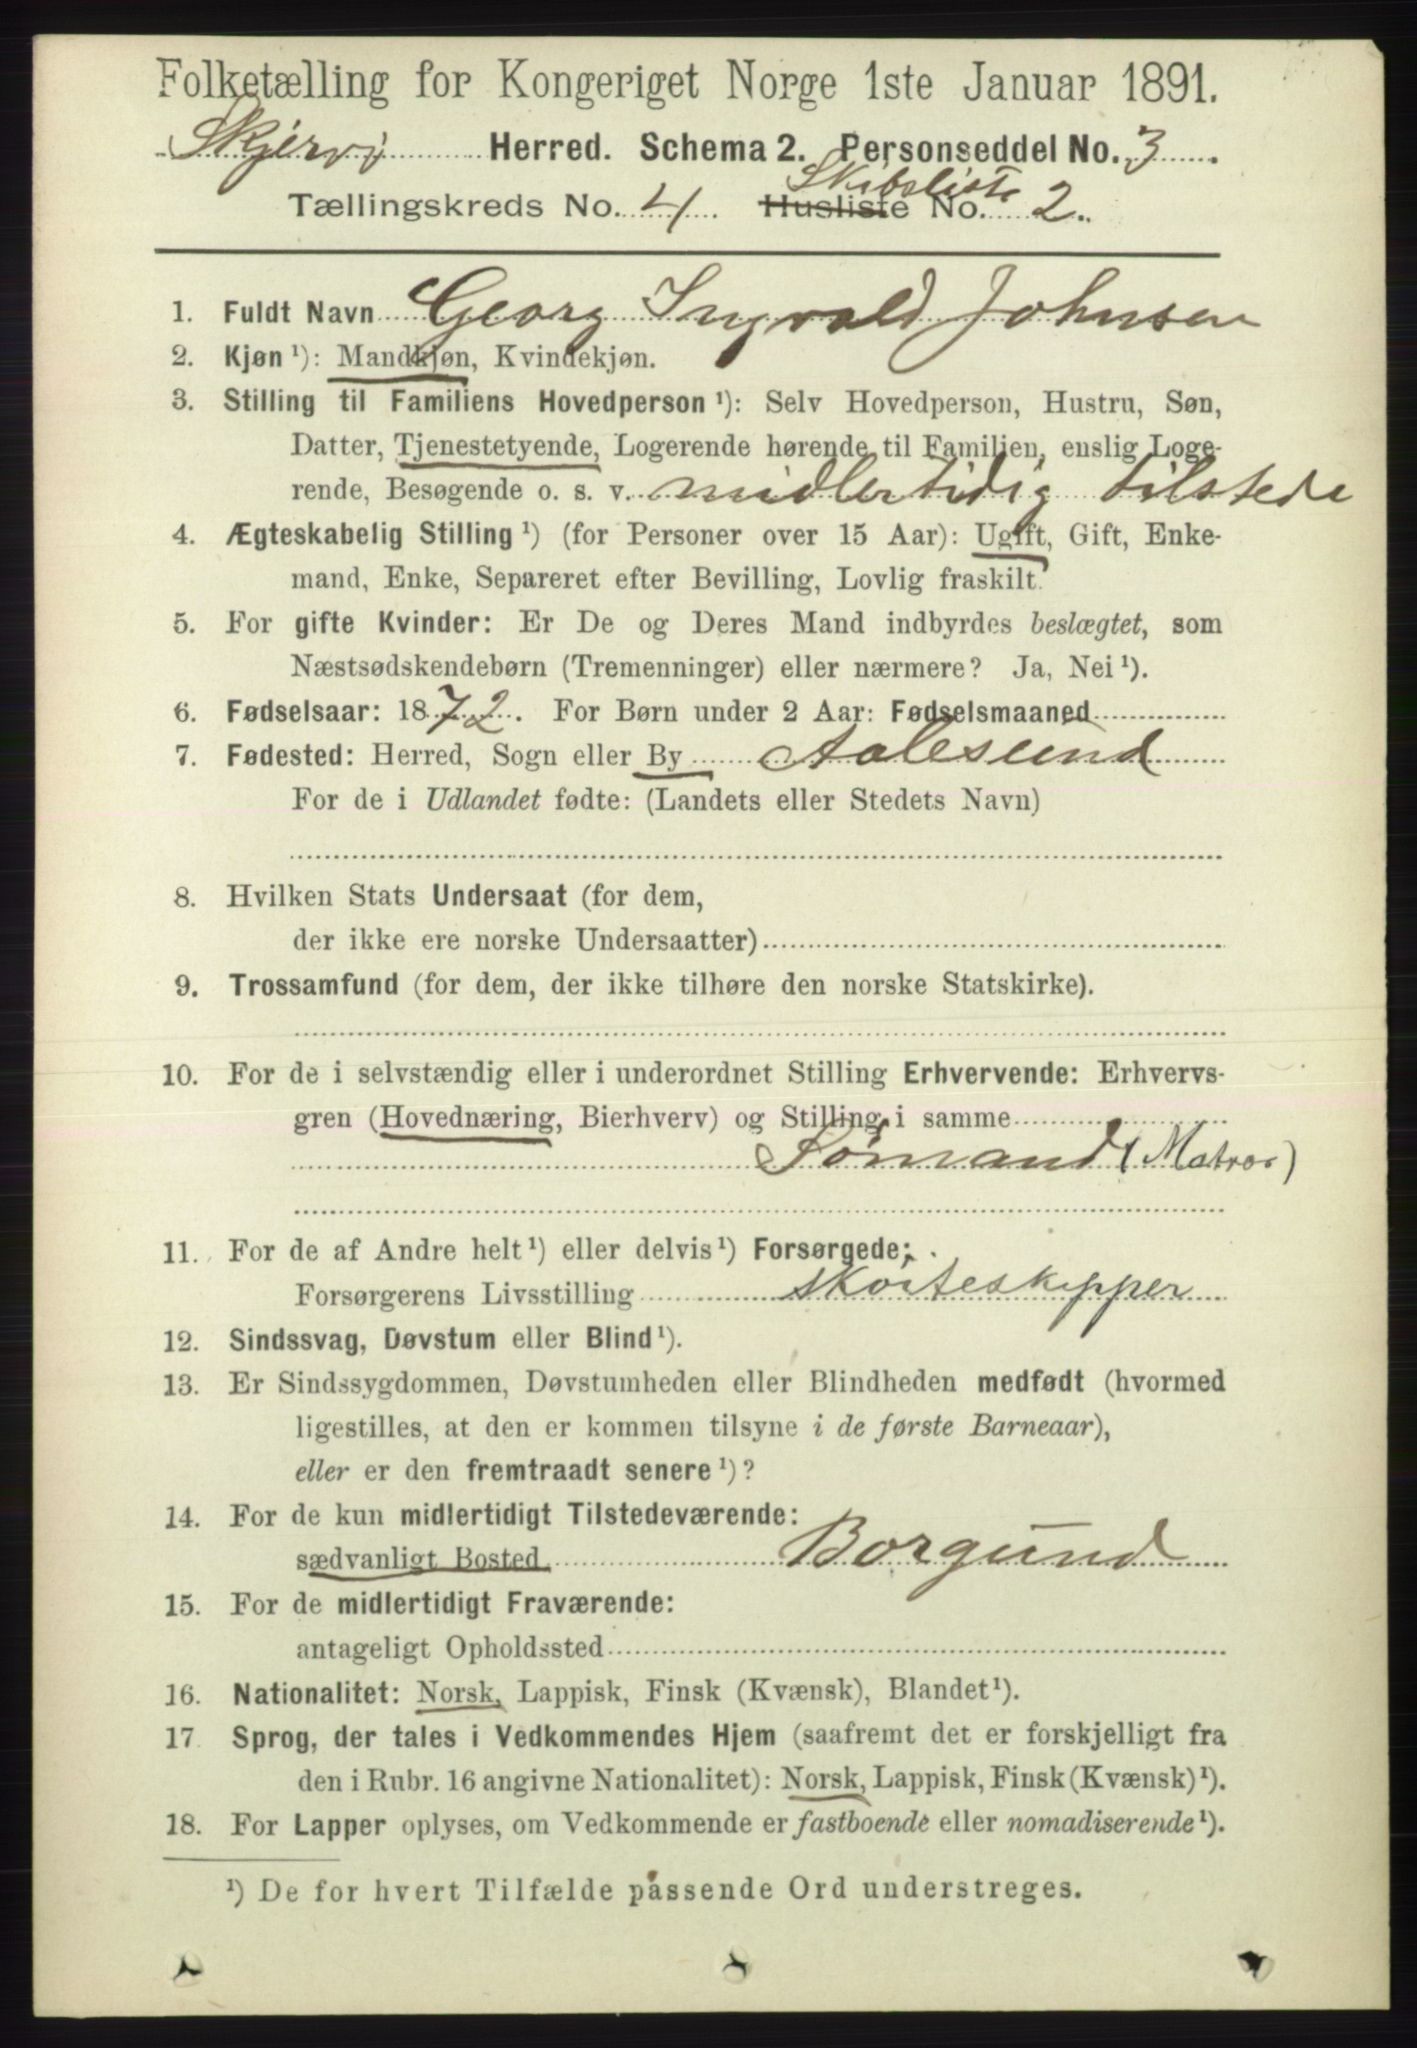 Folketælling for Kongeriget Norge 1ste Januar 1891.
Skjervø Herred. Schema 2. Personseddel No. 3.
Skibsliste
Tællingskreds No. 4. Husliste No. 2.
1. Fuldt Navn Georg Ingvald Johnsen
2. Kjøn ¹): Mandkjøn, Kvindekjøn.
3. Stilling til Familiens Hovedperson ¹): Selv Hovedperson, Hustru, Søn,
Datter, Tjenestetyende, Logerende hørende til Familien, enslig Loge-
rende, Besøgende o. s. v. midlertidig tilstede
4. Ægteskabelig Stilling ¹) (for Personer over 15 Aar): Ugift, Gift, Enke-
mand, Enke, Separeret efter Bevilling, Lovlig fraskilt.
5. For gifte Kvinder: Er De og Deres Mand indbyrdes beslægtet, som
Næstsødskendebørn (Tremenninger) eller nærmere? Ja, Nei ¹).
6. Fødselsaar: 1872. For Børn under 2 Aar: Fødselsmaaned
7. Fødested: Herred, Sogn eller By Aalesund
For de i Udlandet fødte: (Landets eller Stedets Navn)
8. Hvilken Stats Undersaat (for dem,
der ikke ere norske Undersaatter)
9. Trossamfund (for dem, der ikke tilhøre den norske Statskirke).
10. For de i selvstændig eller i underordnet Stilling Erhvervende: Erhvervs-
gren (Hovednæring, Bierhverv) og Stilling i samme
Sømand (Matros)
11. For de af Andre helt ¹) eller delvis ¹) Forsørgede:
Forsørgerens Livsstilling skøiteskipper
12. Sindssvag, Døvstum eller Blind ¹).
13. Er Sindssygdommen, Døvstumheden eller Blindheden medfødt (hvormed
ligestilles, at den er kommen tilsyne i de første Barneaar),
eller er den fremtraadt senere ¹)?
14. For de kun midlertidigt Tilstedeværende:
sædvanligt Bosted Borgund
15. For de midlertidigt Fraværende:
antageligt Opholdssted
16. Nationalitet: Norsk, Lappisk, Finsk (Kvænsk), Blandet ¹).
17 Sprog, der tales i Vedkommendes Hjem (saafremt det er forskjelligt fra
den i Rubr. 16 angivne Nationalitet): Norsk, Lappisk, Finsk (Kvænsk) ¹).
18. For Lapper oplyses, om Vedkommende er fastboende eller nomadiserende ¹).
¹) De for hvert Tilfælde passende Ord understreges.